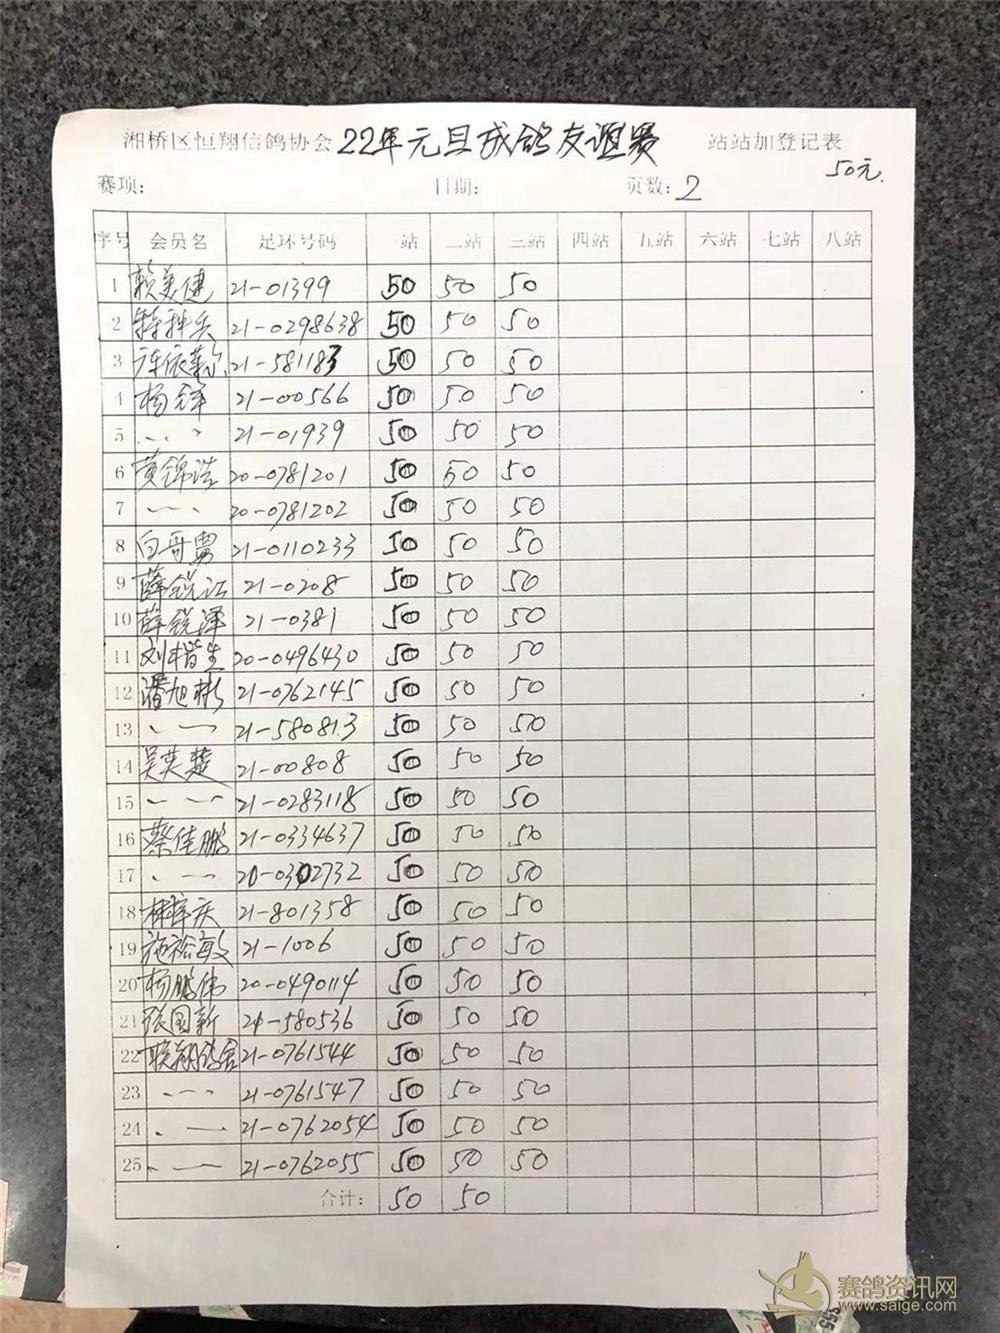 湘桥区恒翔信鸽协会 22年元旦成鸽友谊赛 站站加登记表
50元.
赛项: 日期: 页数: 2
序号 会员名 足环号码 一站 二站 三站 四站 五站 六站 七站 八站
1 赖美健 21-01399 50 50 50
2 特种兵 21-0298638 50 50 50
3 21-581183 50 50 50
4 杨锋 21-00566 50 50 50
5 21-01939 50 50 50
6 黄锦浩 20-0781201 50 50 50
7 20-0781202 50 50 50
8 白哥 21-0110233 50 50 50
9 薛锐江 21-0208 50 50 50
10 薛锐泽 21-0381 50 50 50
11 刘楷生 20-0496430 50 50 50
12 潘旭彬 21-0762145 50 50 50
13 21-580813 50 50 50
14 吴英楚 21-00808 50 50 50
15 21-0283118 50 50 50
16 蔡佳鹏 21-0334637 50 50 50
17 20-0302732 50 50 50
18 林梓庆 21-801358 50 50 50
19 施裕敏 21-1006 50 50 50
20 杨鹏伟 20-0490114 50 50 50
21 张国新 21-580536 50 50 50
22 联翔鸽舍 21-0761544 50 50 50
23 21-0761547 50 50 50
24 21-0762054 50 50 50
25 21-0762055 50 50 50
合计: 50 50
赛鸽资讯网
www.saige.com